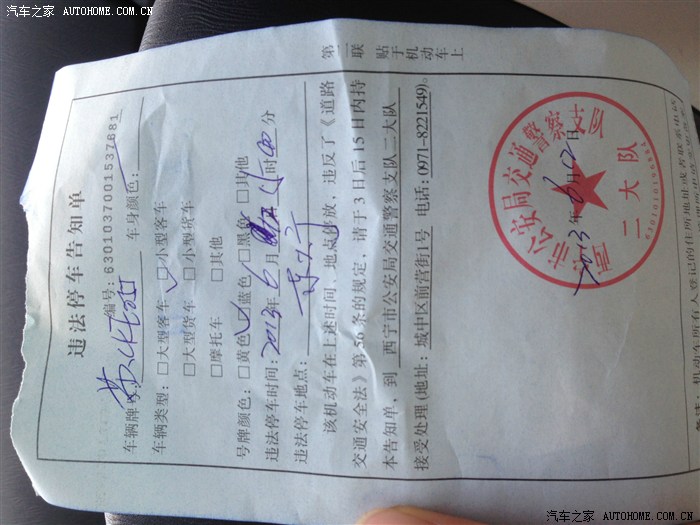 汽车之家 AUTOHOME.COM.CN
第二联 贴于机动车上
违法停车告知单
编号:6301037001537681
车辆牌号: 车身颜色:
车辆类型: □大型客车 □小型客车
□大型货车 □小型货车
□摩托车 □其他
号牌颜色: □黄色 □蓝色 □黑色 □其他
违法停车时间: 2013年6月12日 时 分
违法停车地点:
该机动车在上述时间、地点停放，违反了《道路
交通安全法》第56条的规定，请于3日后15日内持
本告知单，到 西宁市公安局交通警察支队二大队
接受处理(地址: 城中区前营街1号 电话: 0971-8221549)。
西宁市公安局交通警察支队
二大队
2013年6月12日
汽车之家 AUTOHOME.COM.CN